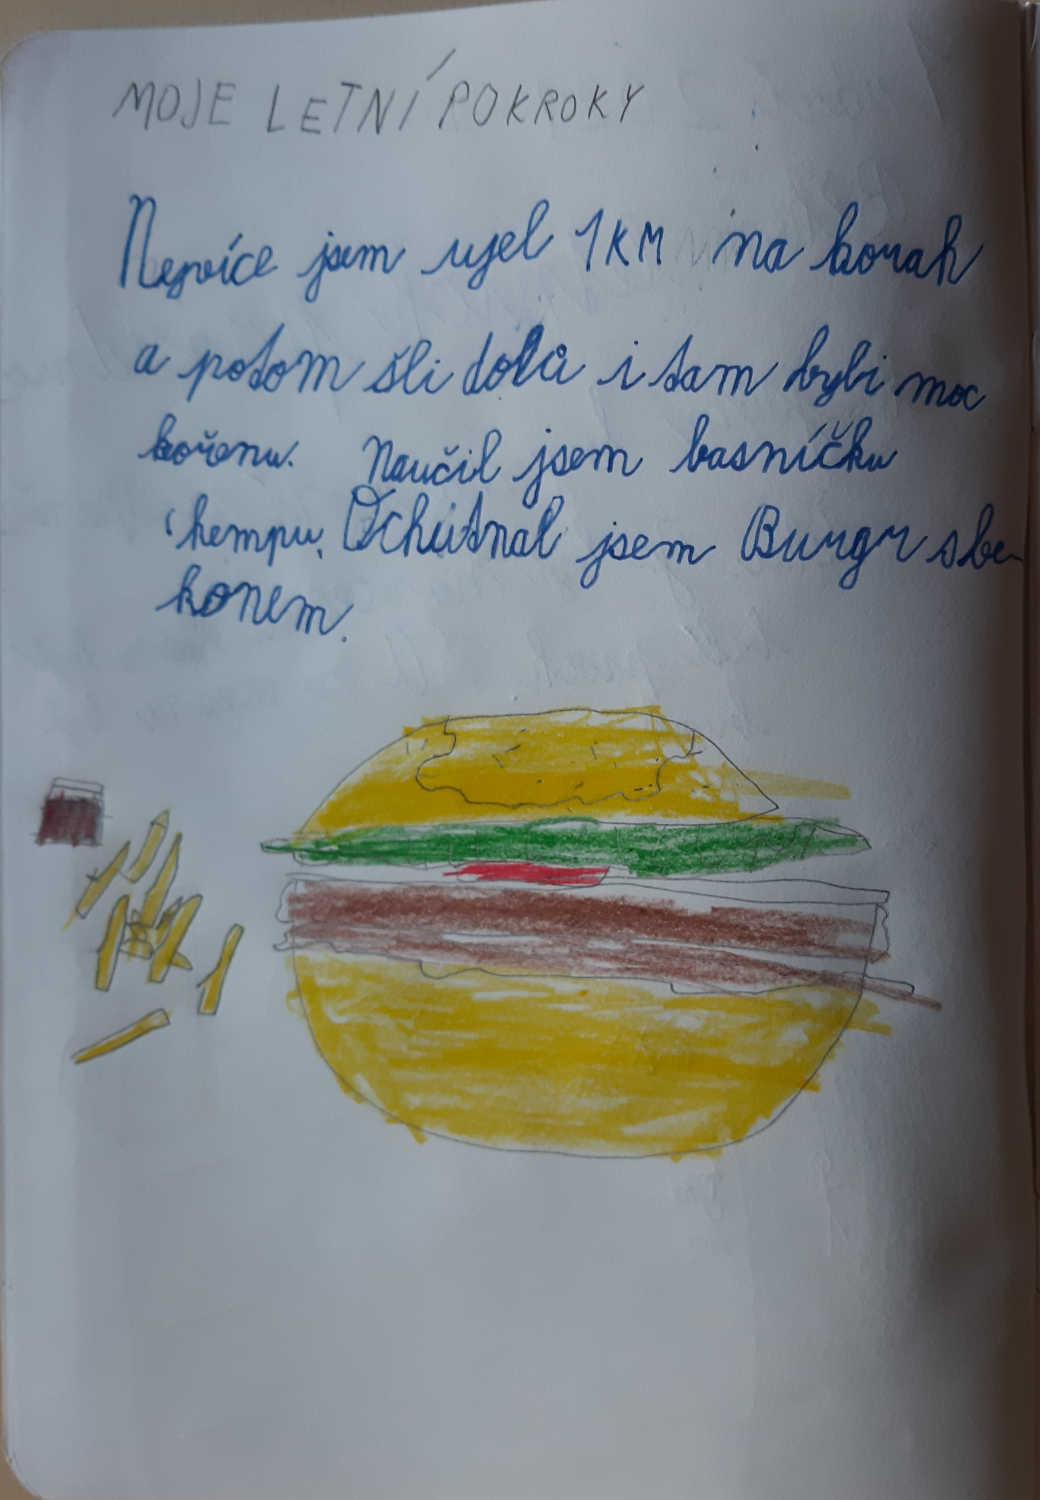 MOJE LETNÍ POKROKY
Nejvíce jsem ujel 1KM na horah
a potom šli dolů i tam byli moc
kořenu. Naučil jsem basničku
kempu. Ochutnal jsem Burgr sbe
konem.